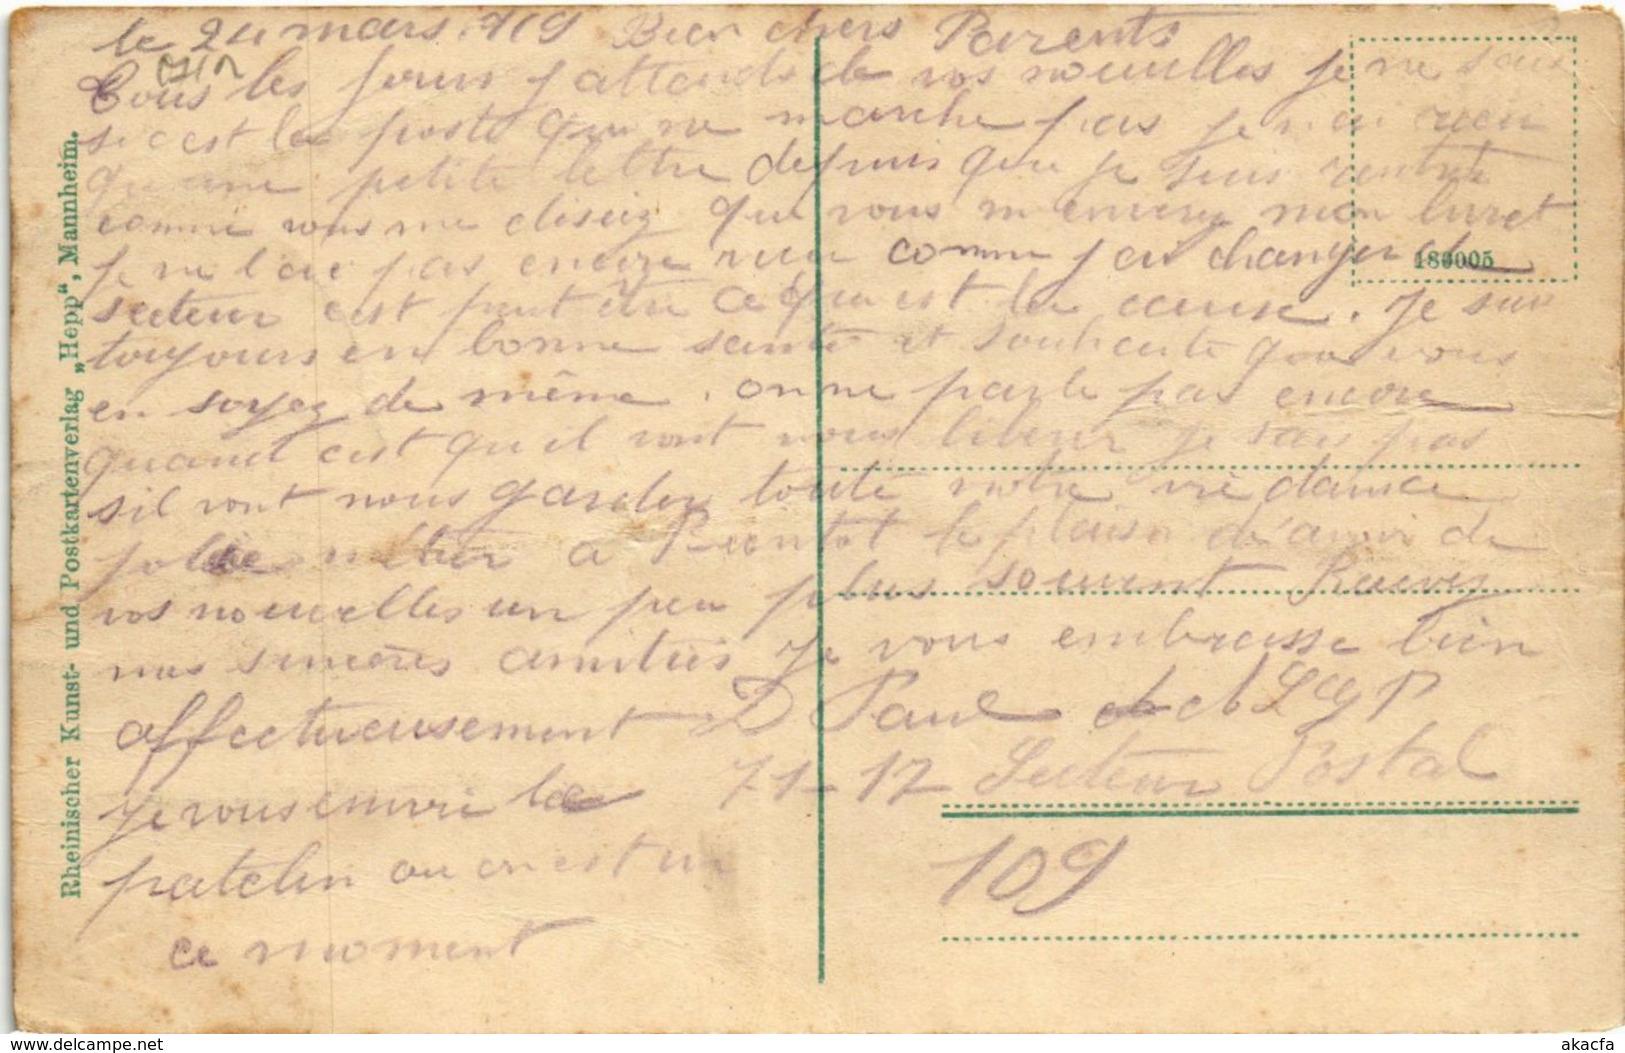 le 24 mars 1919 Bien chers Parents
Tous les jours j'attends de vos nouvelles je ne sais
si c'est la poste qui ne marche pas je n'ai rien
qu'une petite lettre depuis que je suis rentré
comme vous me disiez que vous m'envoyez mon livret
je ne l'ai pas encore reçu comme j'ai changer de
secteur c'est peut être ce qui est la cause. Je suis
toujours en bonne santé et souhaite que vous
en soyez de même. on ne parle pas encore
quand c'est qu'il vont nous liberer je sais pas
s'il vont nous garder toute notre vie dans ce
metier a Bientot le plaisir d'avoir de
vos nouvelles un peu plus souvent Recevez
mes sincères amitiés Je vous embrasse bien
affectueusement D Paul
71-17 Secteur Postal
109
Je vous envoie le
patelin ou on est en
ce moment
Rheinischer Kunst- und Postkartenverlag „Hepp“, Mannheim.
189005
akacfa